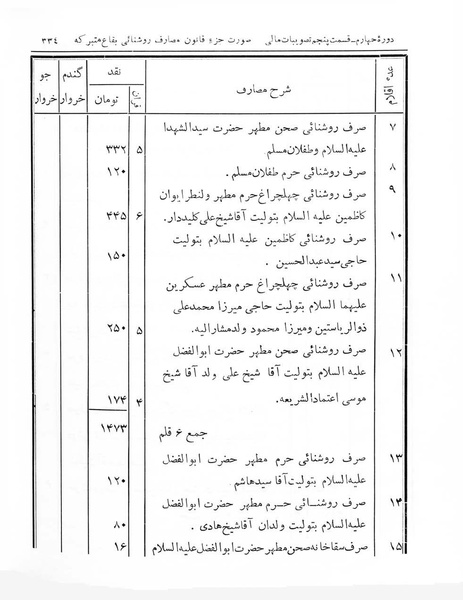 دورۀ چهارم ـ قسمت پنجم تصویبات مالی    صورت جزء قانون مصارف روشنائی بقاع متبرکه    ۳۳٤
عدۀ اقلام    شرح مصارف    نقد    گندم    جو
قران    تومان    خروار    خروار
۷    صرف روشنائی صحن مطهر حضرت سیدالشهدا
علیه‌السلام وطفلان مسلم    ۵    ۳۳۲
۸    صرف روشنائی حرم طفلان مسلم .    ۱۲۰
۹    صرف روشنائی چهلچراغ حرم مطهر ولنطر ایوان
کاظمین علیه السلام بتولیت آقاشیخ علی کلیددار.    ۶    ۴۴۵
۱۰    صرف روشنائی کاظمین علیه السلام بتولیت
حاجی سید عبدالحسین .    ۱۵۰
۱۱    صرف روشنائی چهلچراغ حرم مطهر عسکرین
علیهما السلام بتولیت حاجی میرزا محمدعلی
ذوالریاستین ومیرزا محمود ولد مشارالیه.    ۵    ۲۵۰
۱۲    صرف روشنائی صحن مطهر حضرت ابوالفضل
علیه السلام بتولیت آقا شیخ علی ولد آقا شیخ
موسی اعتماد الشریعه.    ۴    ۱۷۴
جمع ۶ قلم    ۱۴۷۳
۱۳    صرف روشنائی حرم مطهر حضرت ابوالفضل
علیه السلام بتولیت آقا سید هاشم    ۱۲۰
۱۴    صرف روشنائی حرم مطهر حضرت ابوالفضل
علیه السلام بتولیت ولدان آقاشیخ هادی .    ۸۰
۱۵    صرف سقاخانه صحن مطهر حضرت ابوالفضل علیه السلام    ۱۶